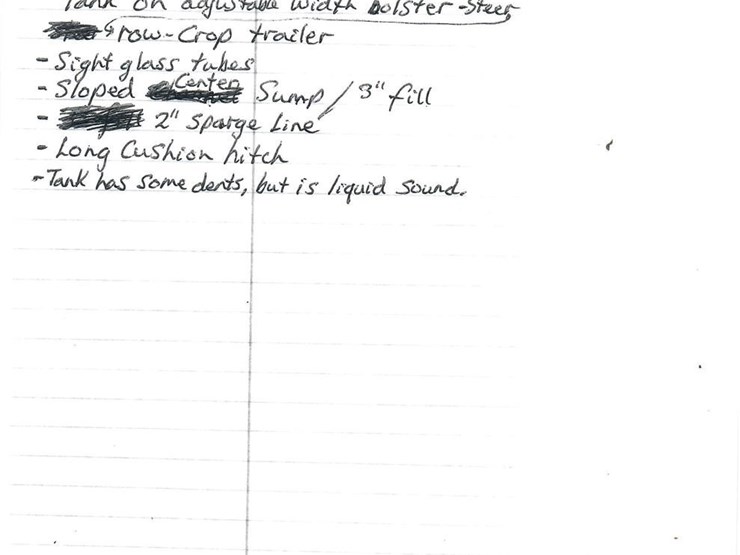 Tank on adjustable width bolster-steer,
row-Crop trailer
- Sight glass tubes
- Sloped Center Sump / 3" fill
- 2" Sparge Line
- Long Cushion hitch
- Tank has some dents, but is liquid sound.